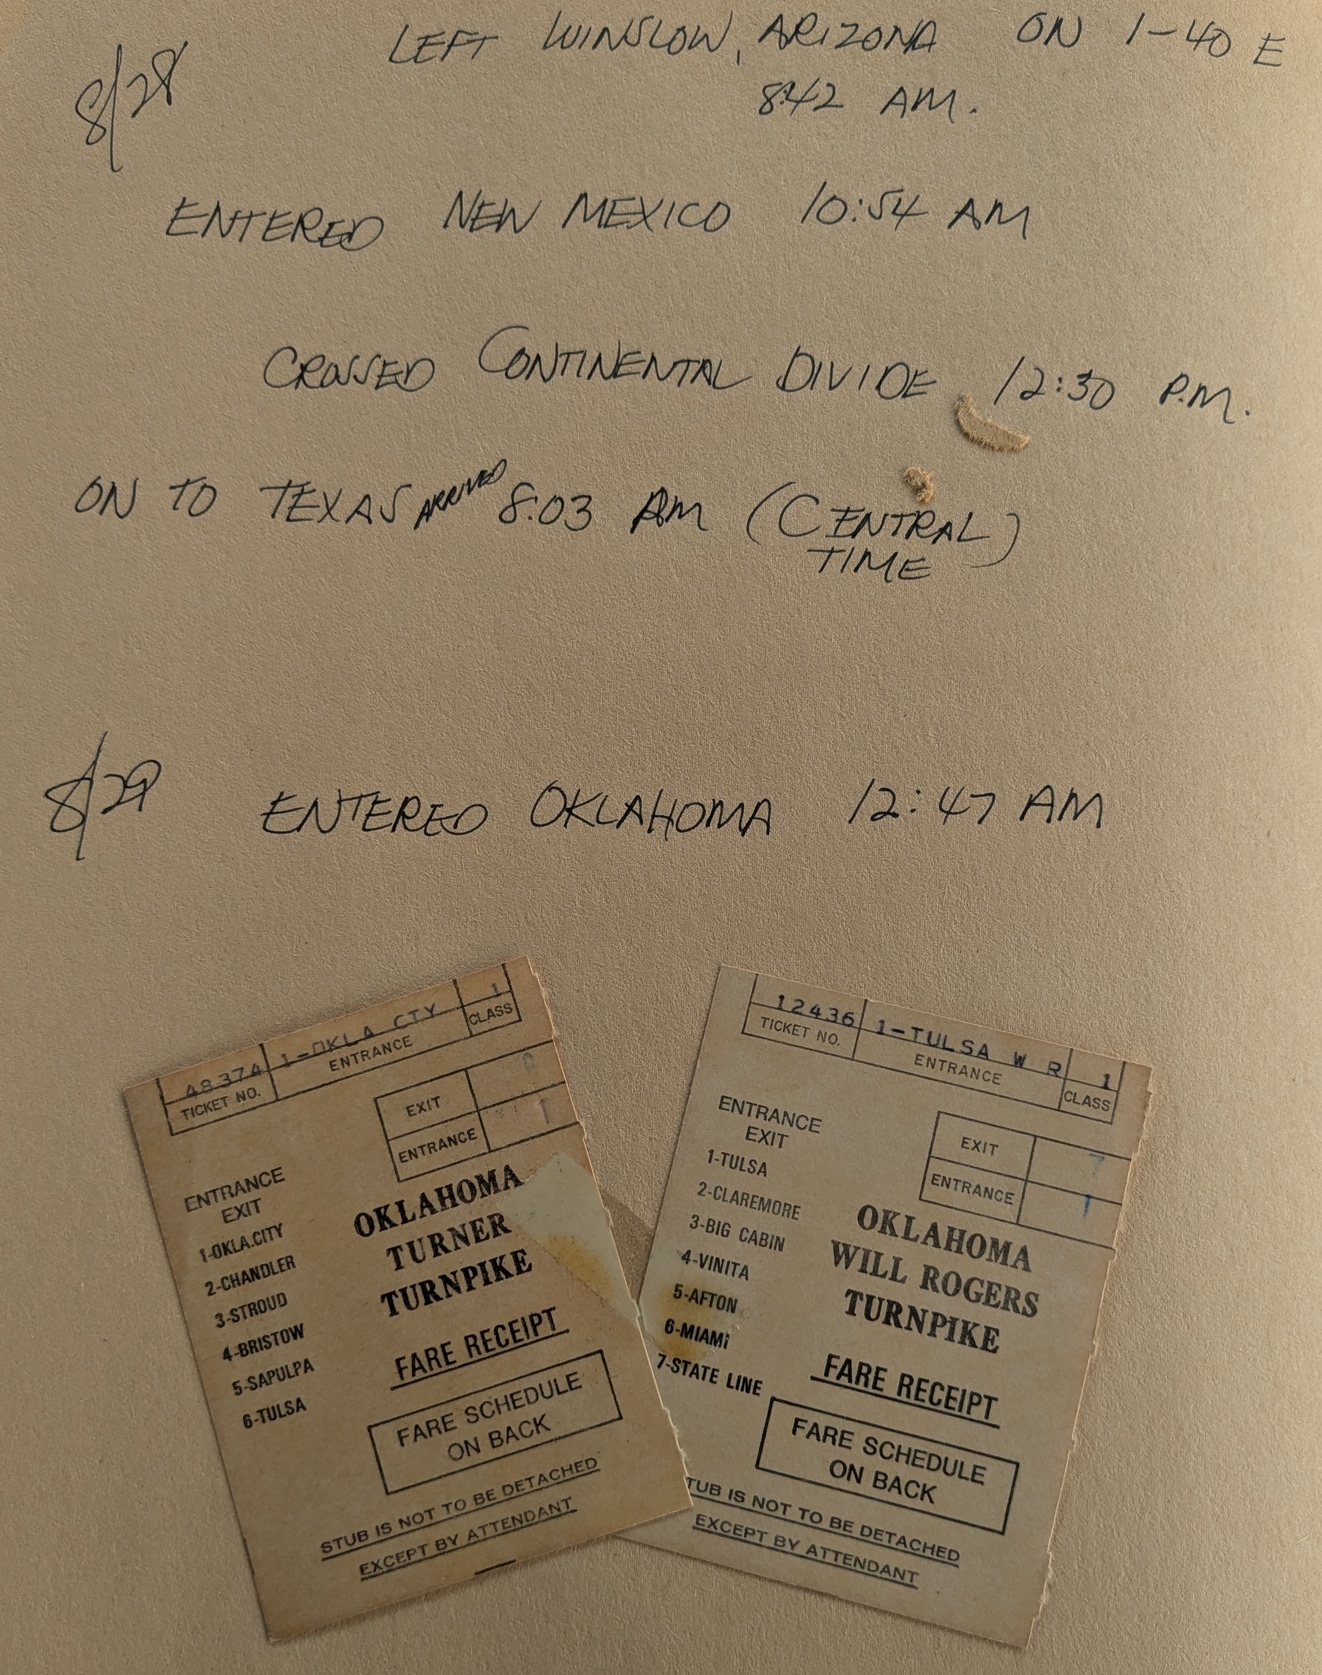 8/28
LEFT WINSLOW, ARIZONA ON I-40 E
8:42 AM.
ENTERED NEW MEXICO 10:54 AM
CROSSED CONTINENTAL DIVIDE 12:30 P.M.
ON TO TEXAS ARRIVED 8:03 PM (CENTRAL)
TIME
8/29
ENTERED OKLAHOMA 12:47 AM
48374 1-OKLA CTY 1
TICKET NO. ENTRANCE CLASS
EXIT
ENTRANCE 1
ENTRANCE
EXIT
1-OKLA.CITY
2-CHANDLER
3-STROUD
4-BRISTOW
5-SAPULPA
6-TULSA
OKLAHOMA
TURNER
TURNPIKE
FARE RECEIPT
FARE SCHEDULE
ON BACK
STUB IS NOT TO BE DETACHED
EXCEPT BY ATTENDANT
12436 1-TULSA W R 1
TICKET NO. ENTRANCE CLASS
EXIT 7
ENTRANCE 1
ENTRANCE
EXIT
1-TULSA
2-CLAREMORE
3-BIG CABIN
4-VINITA
5-AFTON
6-MIAMI
7-STATE LINE
OKLAHOMA
WILL ROGERS
TURNPIKE
FARE RECEIPT
FARE SCHEDULE
ON BACK
TUB IS NOT TO BE DETACHED
EXCEPT BY ATTENDANT